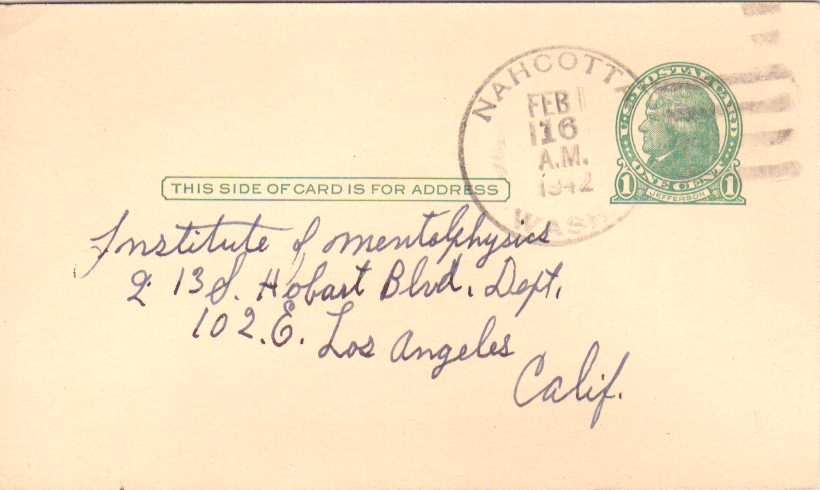 NAHCOTTA
FEB
16
A.M.
1942
WASH
U.S. POSTAL CARD
1 ONE CENT 1
JEFFERSON
THIS SIDE OF CARD IS FOR ADDRESS
Institute of mentalphysics
213 S. Hobart Blvd. Dept.
102.E. Los Angeles
Calif.